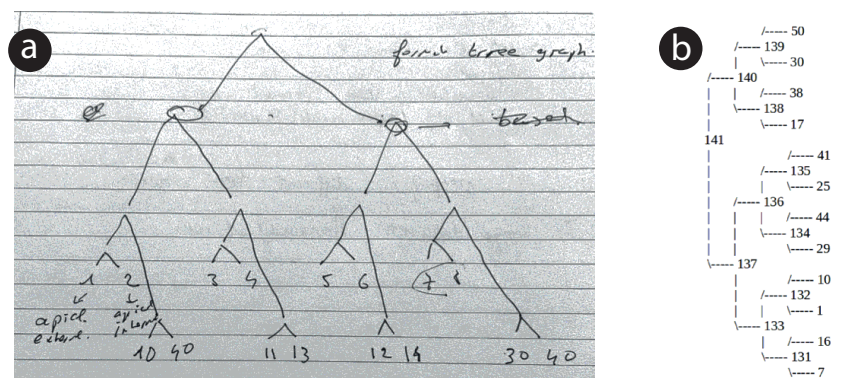 a
found tree graph.
1 2 3 4 5 6 7 8
apical
extern.
apical
10 40 11 13 12 14 30 40
b
/----- 50
/----- 139
| \----- 30
/----- 140
| | /----- 38
| \----- 138
| \----- 17
141
| /----- 41
| /----- 135
| | \----- 25
| /----- 136
| | | /----- 44
| | \----- 134
| | \----- 29
\----- 137
| /----- 10
| /----- 132
| | \----- 1
\----- 133
| /----- 16
\----- 131
\----- 7